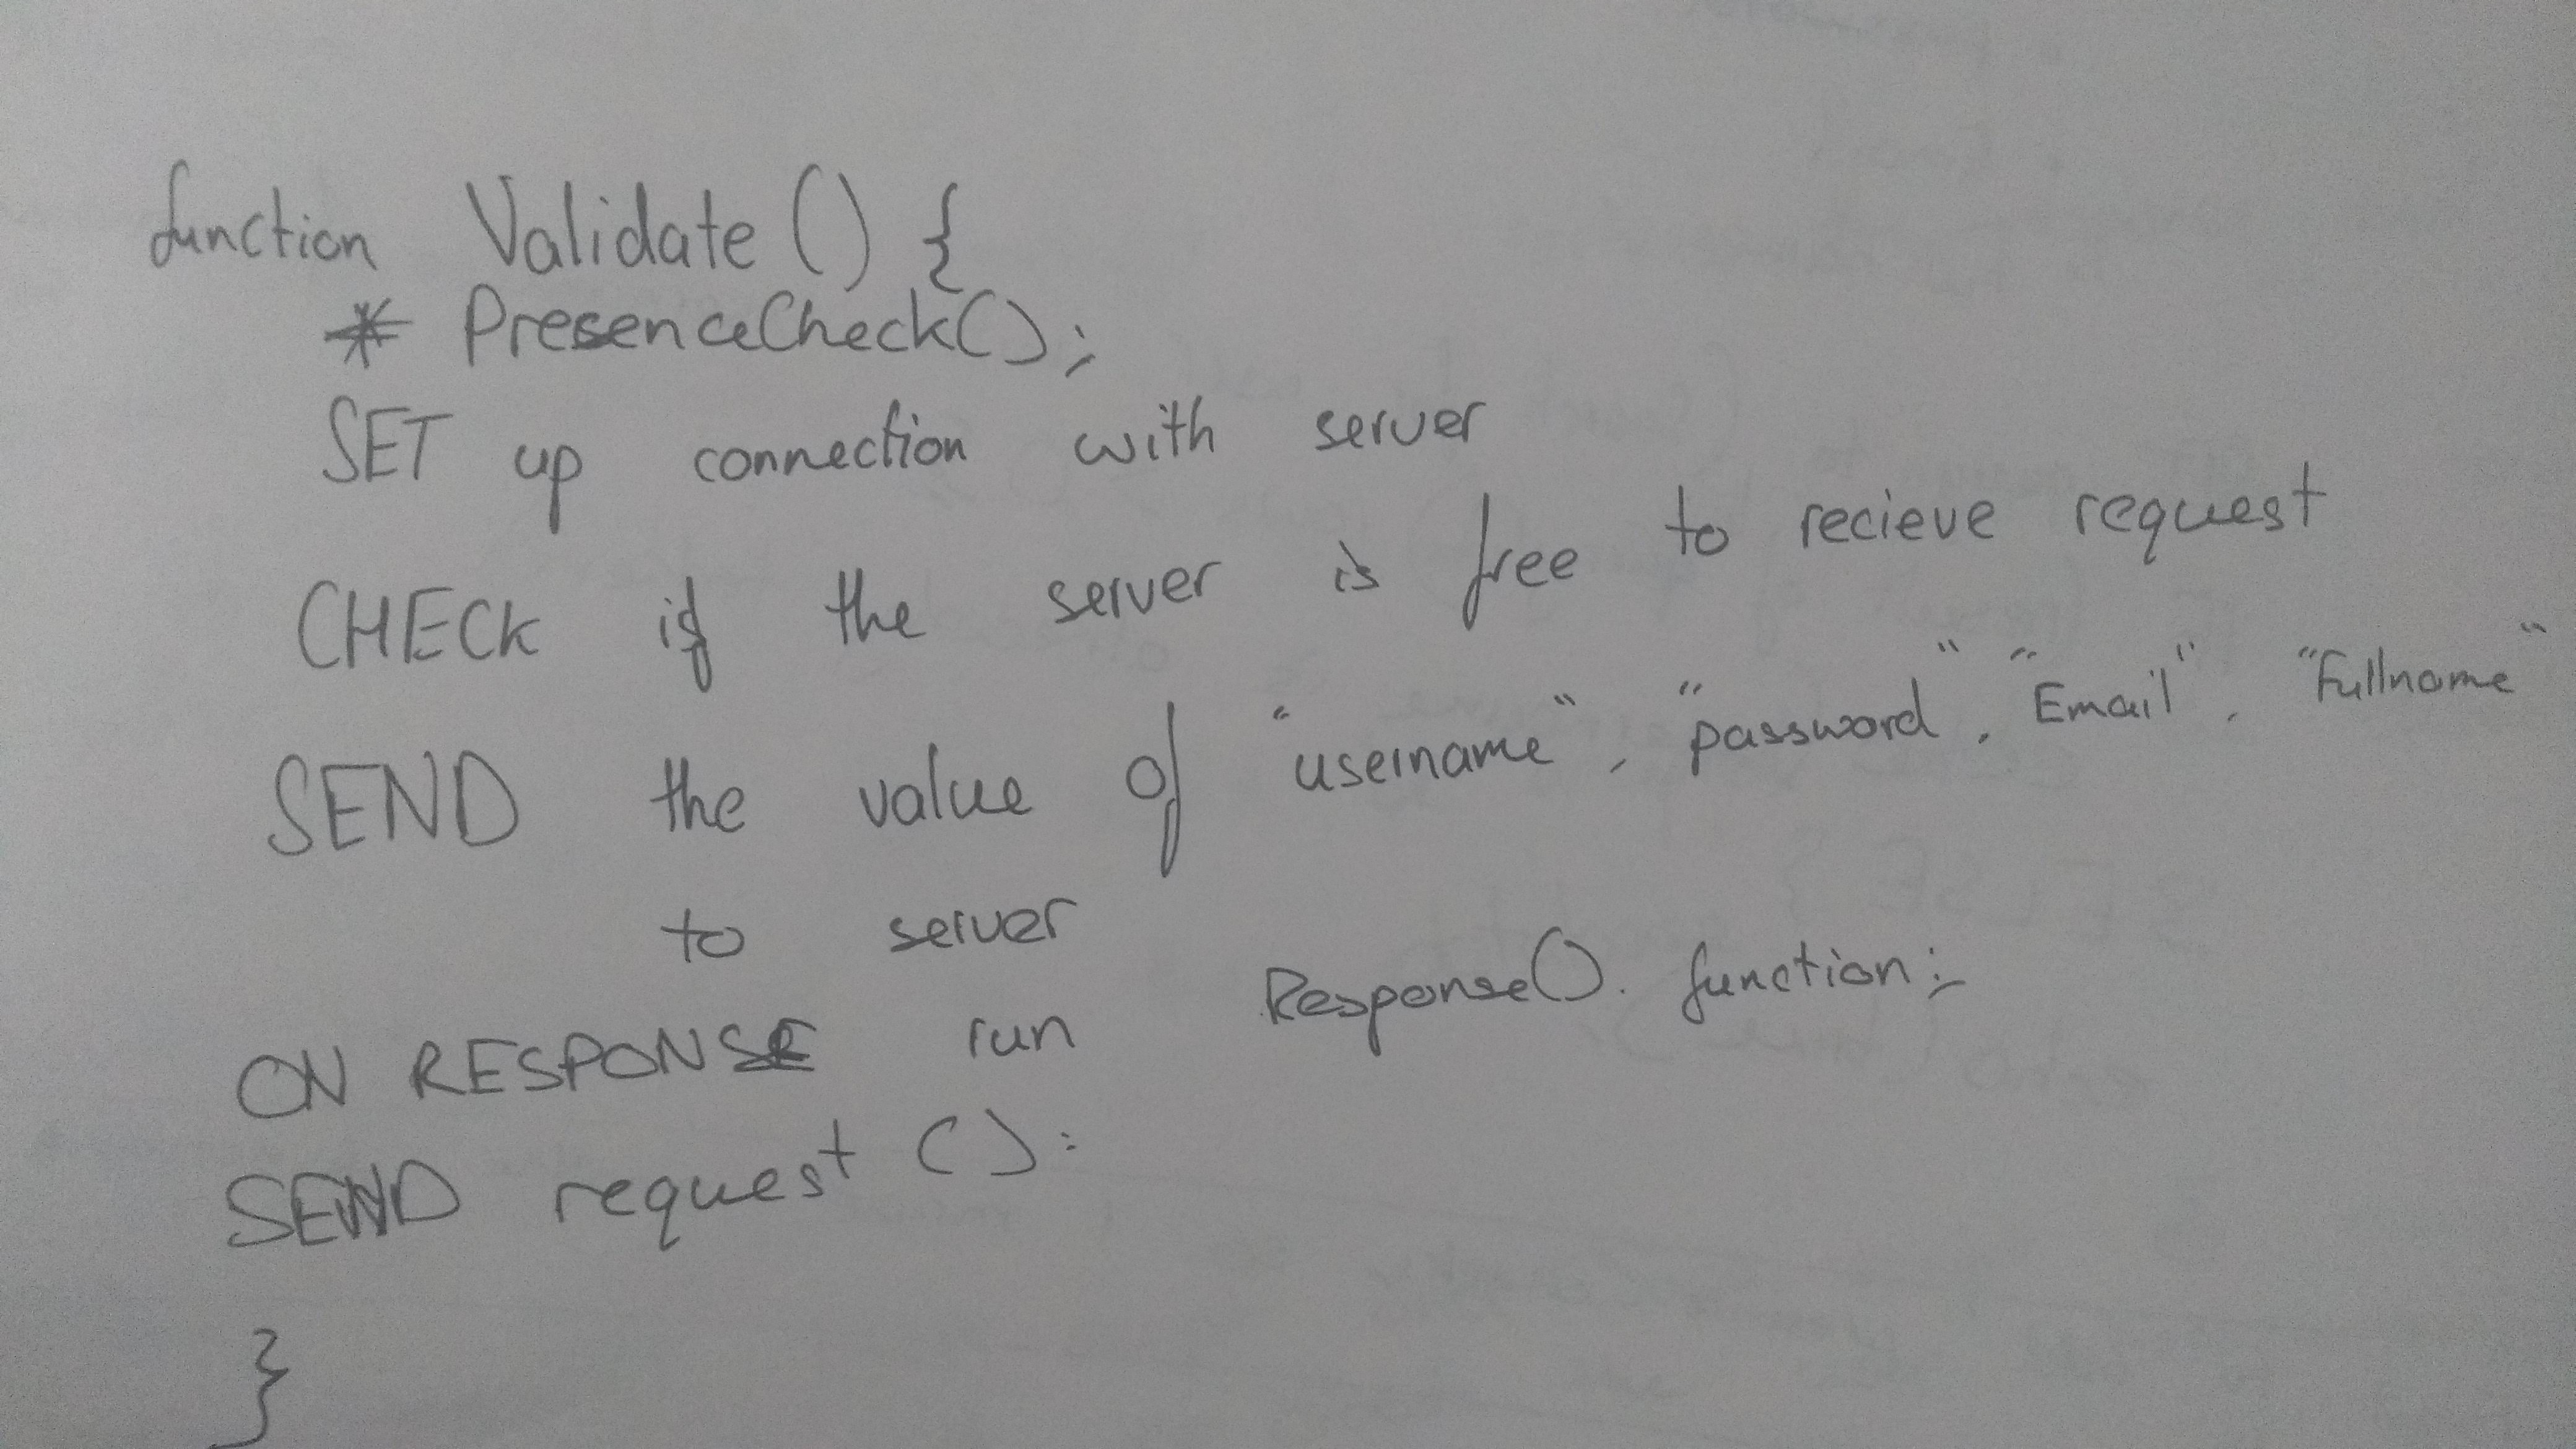 function Validate () {
* PresenceCheck();
SET up connection with server
CHECK if the server is free to recieve request
SEND the value of "username", "password", "Email", "Fullname"
to server
ON RESPONSE run Response(). function;
SEND request ();
}